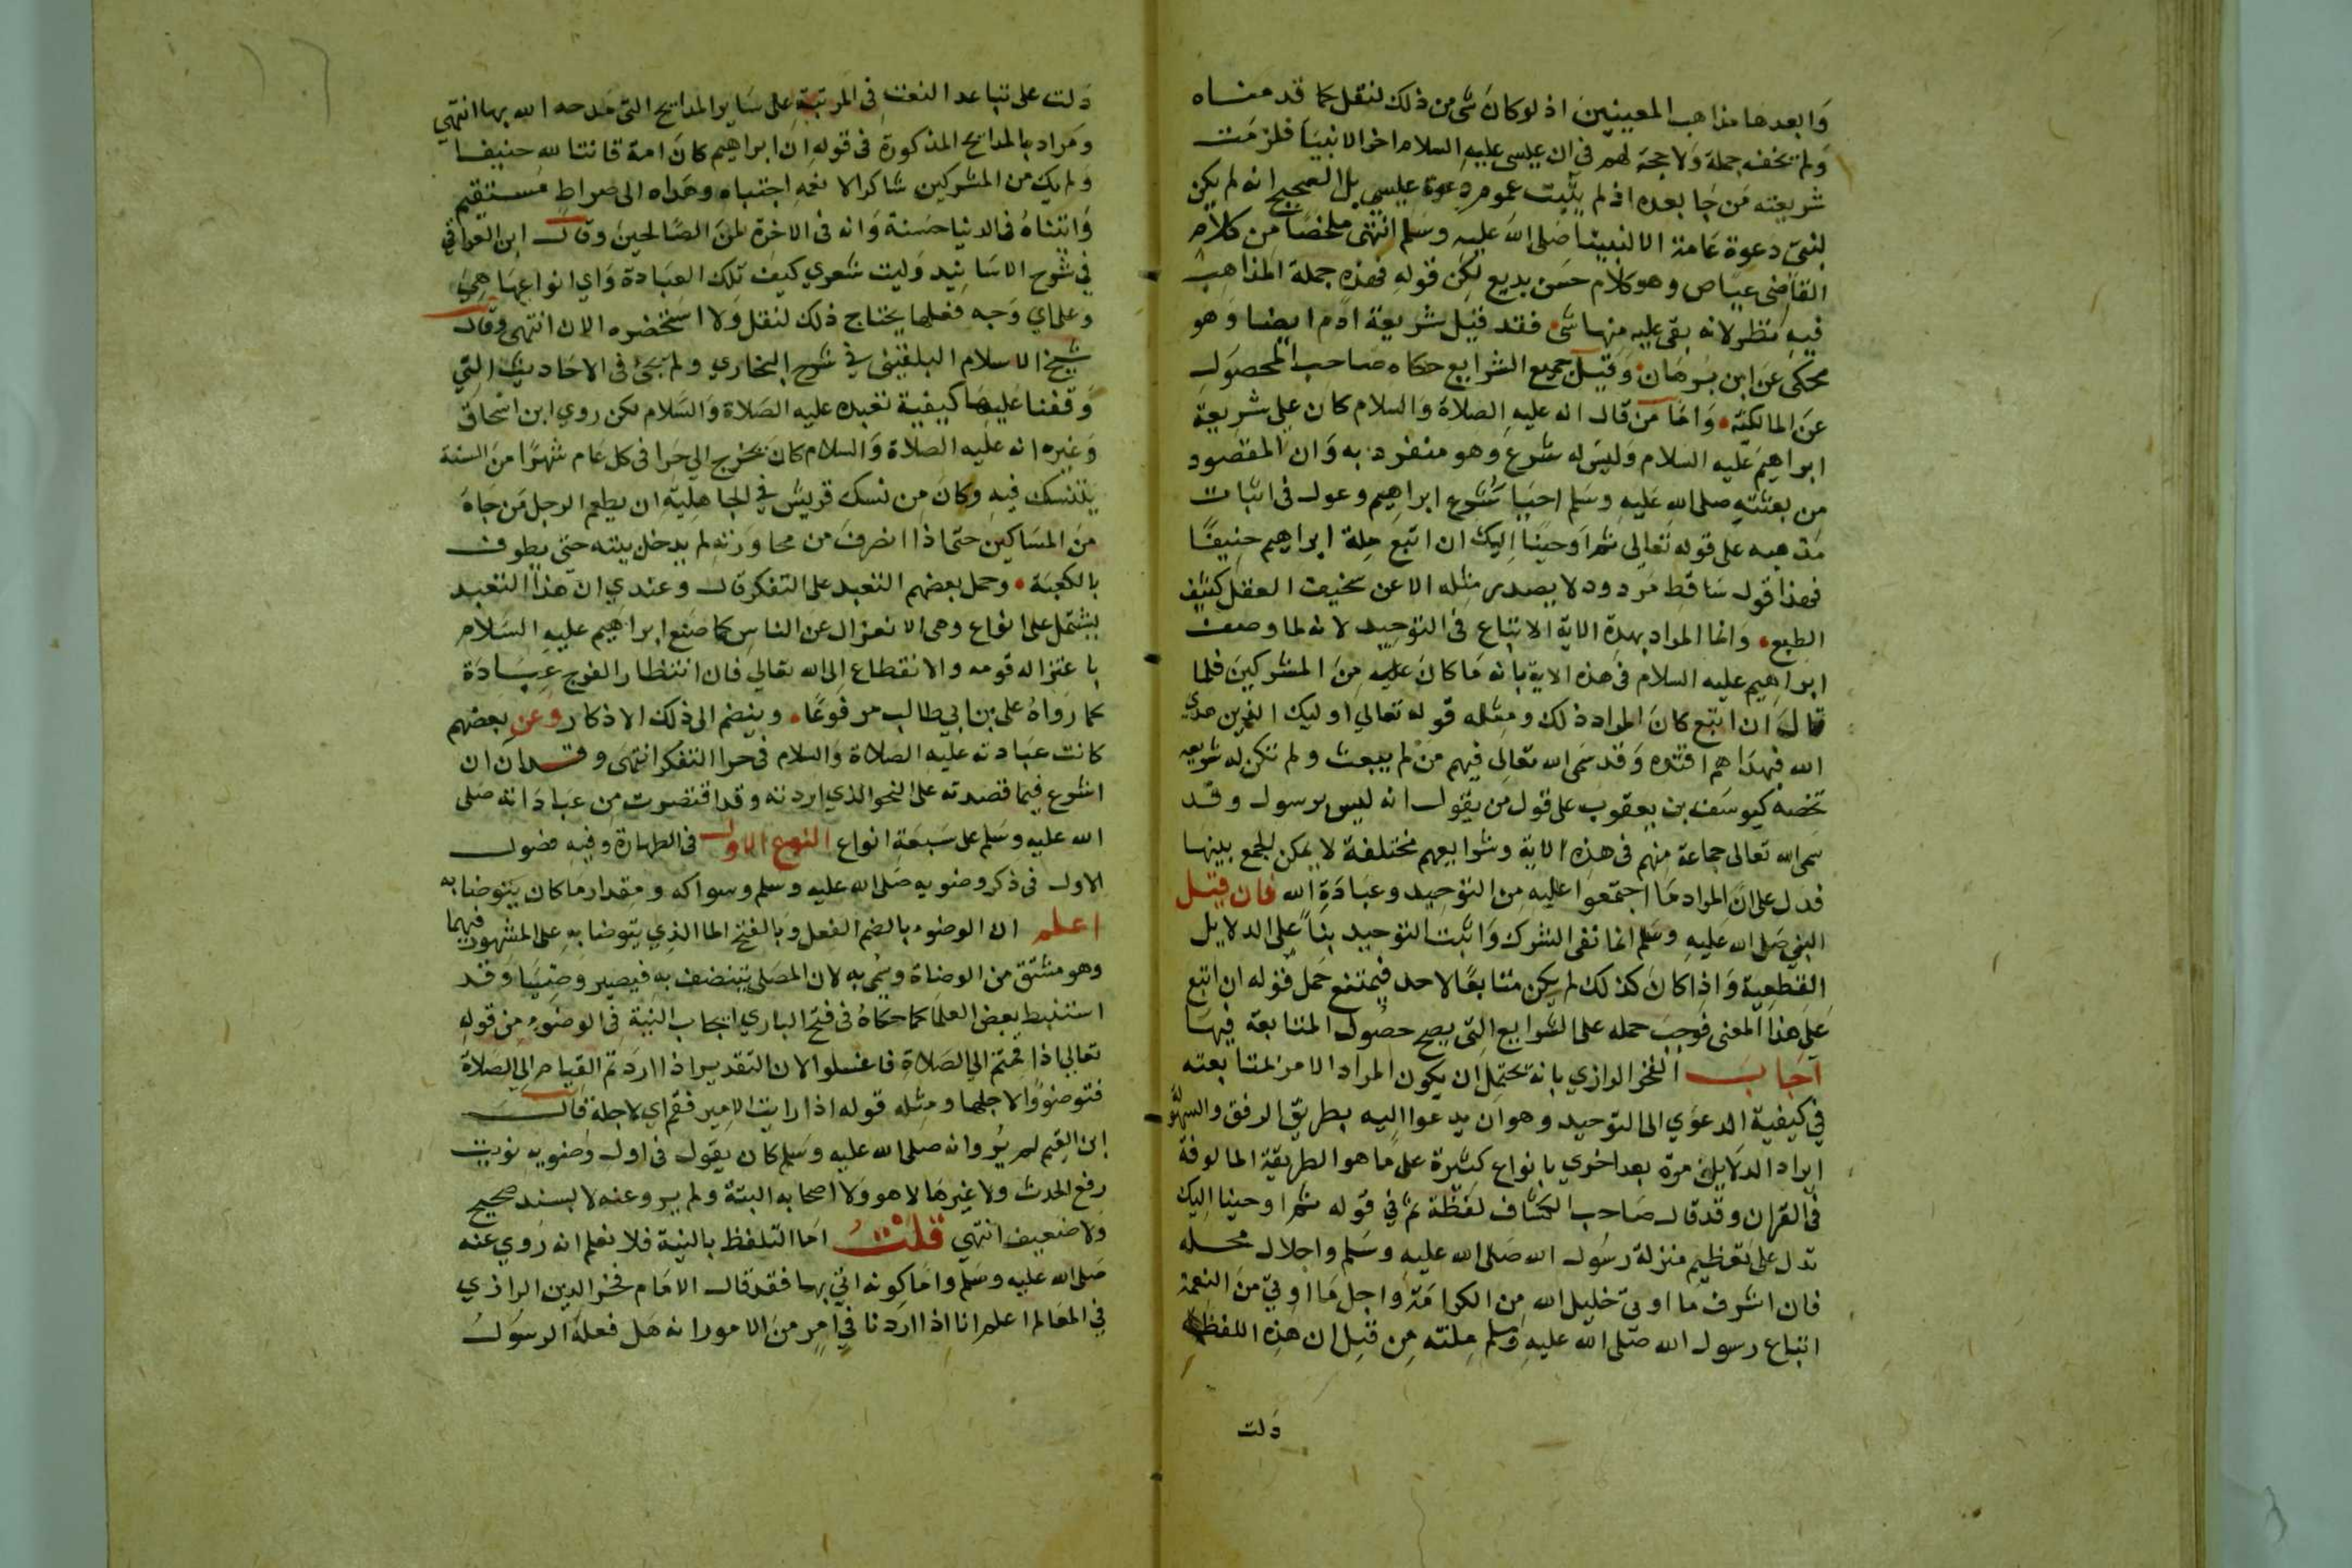 وابعدها مذاهب المعينين اذ لو كان شى من ذلك لنقل كما قدمناه
ولم يخف جملة ولا حجة لهم فى ان عيسى عليه السلام اخر الانبيا فلزمت
شريعته من جا بعده اذ لم يثبت عموم دعوة عيسى بل الصحيح انه لم يكن
لنبى دعوة عامة الا لنبينا صلى الله عليه وسلم انتهى ملخصا من كلام
القاضى عياض وهو كلام حسن بديع لكن قوله فهذه جملة المذاهب
فيه نظر لانه بقى عليه منها شى فقد قيل شريعة ادم ايضا وهو
محكى عن ابن برهان وقيل جميع الشرايع حكاه صاحب المحصول
عن المالكية واما من قال انه عليه الصلاة والسلام كان على شريعة
ابراهيم عليه السلام وليس له شرع وهو منفرد به وان المقصود
من بعثته صلى الله عليه وسلم احيا شرع ابراهيم وعول فى اثبات
مذهبه على قوله تعالى ثم اوحينا اليك ان اتبع ملة ابراهيم حنيفا
فهذا قول ساقط مردود لا يصدر مثله الا عن سخيف العقل كثيف
الطبع وانما المراد بهذه الاية الاتباع فى التوحيد لانه لما وصف
ابراهيم عليه السلام فى هذه الاية بانه ما كان عليه من المشركين فلما
قال ان اتبع كان المراد ذلك ومثله قوله تعالى اوليك الذين هدى
الله فبهداهم اقتده وقد سمى الله تعالى فيهم من لم يبعث ولم تكن له شريعة
تخصه كيوسف بن يعقوب على قول من يقول انه ليس برسول وقد
سمى الله تعالى جماعة منهم فى هذه الاية وشرايعهم مختلفة لا يمكن الجمع بينها
فدل على ان المراد ما اجتمعوا عليه من التوحيد وعبادة الله فان قيل
النبى صلى الله عليه وسلم انما نفى الشرك واثبت التوحيد بنا على الدلايل
القطعية واذا كان كذلك لم يكن متابعا لاحد فيمتنع حمل قوله ان اتبع
على هذا المعنى فوجب حمله على الشرايع التى يصح حصول المتابعة فيها
اجاب الفخر الرازي بانه يحتمل ان يكون المراد الامر بمتابعته
في كيفية الدعوي الى التوحيد وهو ان يدعوا اليه بطريق الرفق والسهولة
ايراد الدلايل مرة بعد اخري بانواع كثيرة على ما هو الطريقة المالوفة
فى القران وقد قال صاحب الكشاف لفظة ثم في قوله ثم اوحينا اليك
تدل على تعظيم منزلة رسول الله صلى الله عليه وسلم واجلال محله
فان اشرف ما اوتى خليل الله من الكرامة واجل ما اوتي من النعمة
اتباع رسول الله صلى الله عليه وسلم ملته من قبل ان هذه اللفظة
دلت
دلت على تباعد النعت فى المرتبة على ساير المدايح التى مدحه الله بها انتهي
ومراد بالمدايح المذكورة فى قوله ان ابراهيم كان امة قانتا لله حنيفا
ولم يك من المشركين شاكرا لانعمه اجتباه وهداه الى صراط مستقيم
واتيناه فى الدنيا حسنة وانه فى الاخرة لمن الصالحين وقال ابن العراقي
في شرح الاسانيد وليت شعري كيف تلك العبادة واي انواعها هي
وعلى اي وجه فعلها يحتاج ذلك لنقل ولا استحضره الان انتهى وقال
شيخ الاسلام البلقينى في شرح البخاري ولم يجئ فى الاحاديث التي
وقفنا عليها كيفية تعبده عليه الصلاة والسلام لكن روي ابن اسحاق
وغيره انه عليه الصلاة والسلام كان يخرج الي حرا فى كل عام شهرا من السنة
يتنسك فيه وكان من نسك قريش في الجاهلية ان يطعم الرجل من جاه
من المساكين حتى اذا انصرف من مجاورته لم يدخل بيته حتى يطوف
بالكعبة وحمل بعضهم التعبد على التفكر قال وعندي ان هذا التعبد
يشتمل على انواع وهى الانعزال عن الناس كما صنع ابراهيم عليه السلام
باعتزاله قومه والانقطاع الى الله تعالي فان انتظار الفرج عبادة
كما رواه على بن ابي طالب مرفوعا وينضم الى ذلك الاذكار وعن بعضهم
كانت عبادته عليه الصلاة والسلام فى حرا التفكر انتهى وقد ان ان
اشرع فيما قصدته على النحو الذي اردته وقد اقتصرت من عباداته صلى
الله عليه وسلم على سبعة انواع النوع الاول فى الطهارة وفيه فصول
الاول فى ذكر وضويه صلى الله عليه وسلم وسواكه ومقدار ما كان يتوضا به
اعلم ان الوضوء بالضم الفعل وبالفتح الما الذي يتوضا به على المشهور فيهما
وهو مشتق من الوضاة وسمى به لان المصلى يتنضف به فيصير وضييا وقد
استنبط بعض العلما كما حكاه فى فتح الباري ايجاب النية فى الوضوء من قوله
تعالي اذا قمتم الي الصلاة فاغسلوا لان التقدير اذا اردتم القيام الي الصلاة
فتوضوا لاجلها ومثله قوله اذا رايت الامير فقم اي لاجله قال
ابن القيم لم يرو انه صلى الله عليه وسلم كان يقول فى اول وضويه نويت
رفع الحدث ولا غيرها لا هو ولا اصحابه البتة ولم يرو عنه لا بسند صحيح
ولا ضعيف انتهي قلت اما التلفظ بالنية فلا نعلم انه روي عنه
صلى الله عليه وسلم واما كونه اتى بها فقد قال الامام فخر الدين الرازي
في المعالم اعلم انا اذا اردنا في امر من الامور انه هل فعله الرسول